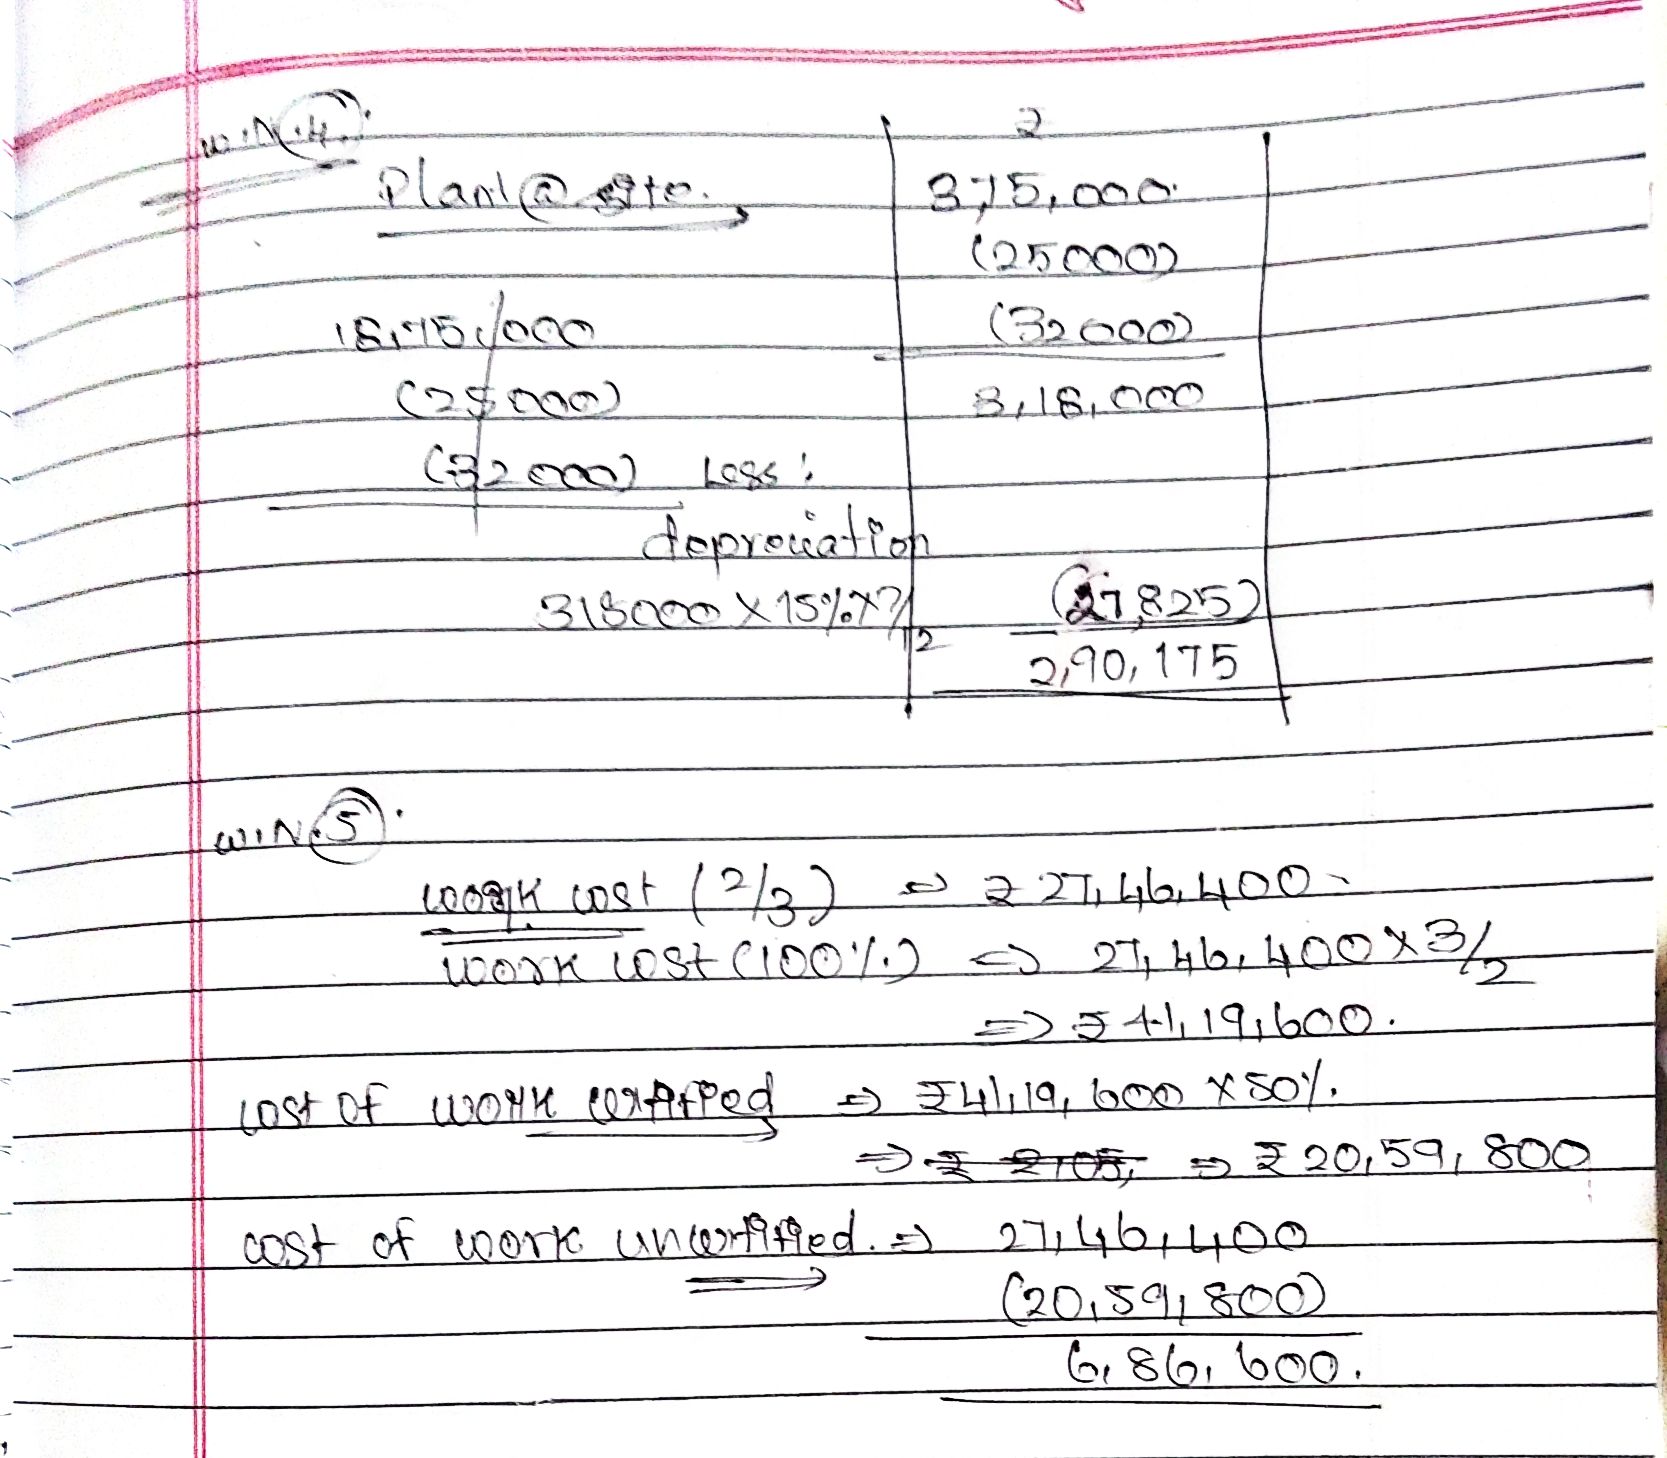 W.N.4.
₹
Plant @ site. 3,75,000
(25000)
18,75,000 (32000)
(25000) 3,18,000
(32000) Less:
depreciation
318000 X 15% X 7/12 (27,825)
2,90,175
W.N.5.
work cost (2/3) ⇒ ₹ 27,46,400
work cost (100%) ⇒ 27,46,400 X 3/2
⇒ ₹ 41,19,600.
cost of work certified ⇒ ₹41,19,600 X 50%.
⇒ ₹ 2,05, ⇒ ₹ 20,59,800
cost of work uncertified. ⇒ 27,46,400
(20,59,800)
6,86,600.